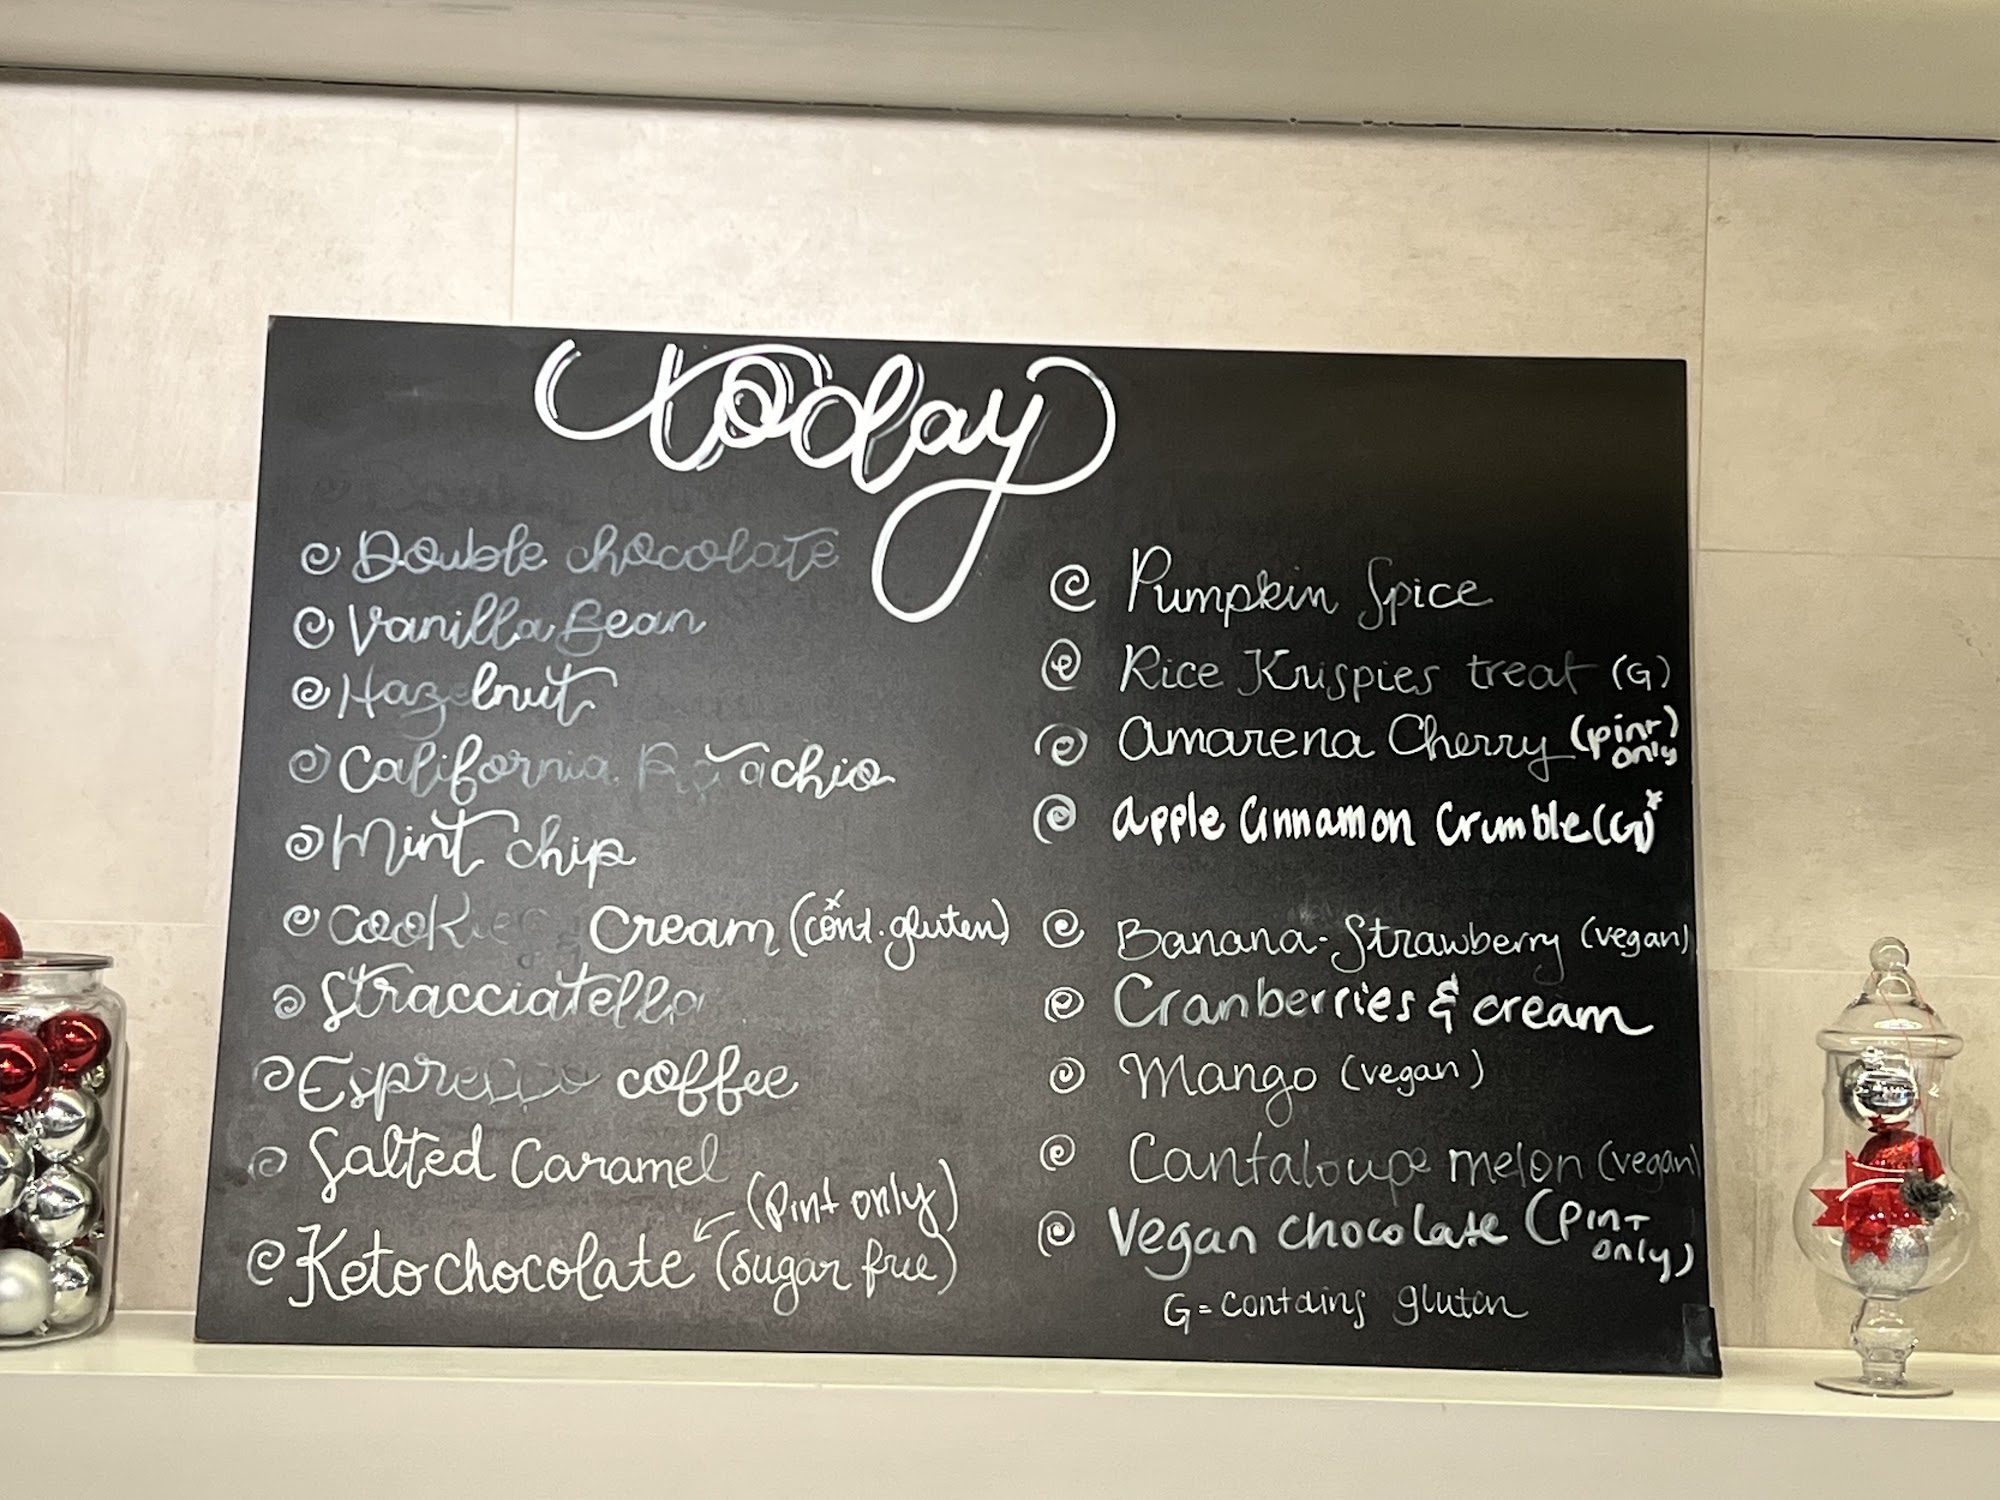 today
Double chocolate
Vanilla Bean
Hazelnut
California Pistachio
Mint chip
Cookies & Cream (cont. gluten)
Stracciatella
Espresso coffee
Salted Caramel
(pint only)
Keto chocolate (sugar free)
Pumpkin Spice
Rice Krispies treat (G)
Amarena Cherry (pint only)
Apple Cinnamon Crumble (G)*
Banana-Strawberry (vegan)
Cranberries & cream
Mango (vegan)
Cantaloupe melon (vegan)
Vegan chocolate (pint only)
G = contains gluten